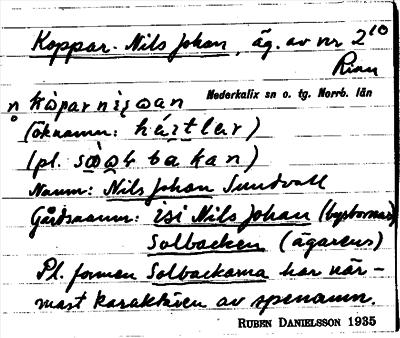 Koppar-Nils Johan, äg. av nr 2¹⁰
Rian
Nederkalix sn o. tg. Norrb. län
(öknamn: hártlar)
(pl.
Namn: Nils Johan Sundvall
Gårdsnamn: isi Nils Johan (bysbornas)
Solbacken (ägarens)
Pl. formen Solbackarna har när-
mast karaktären av spenamn.
RUBEN DANIELSSON 1935